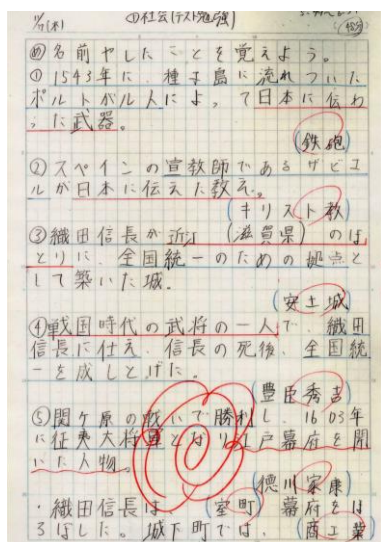 11/7(木) ①社会(テスト勉強)
め名前やしたことを覚えよう。
①1543年に、種子島に流れついた
ポルトガル人によって日本に伝わ
った武器。
(鉄砲)
②スペインの宣教師であるザビエ
ルが日本に伝えた教え。
(キリスト教)
③織田信長が近江(滋賀県)のほ
とりに、全国統一のための拠点と
して築いた城。
(安土城)
④戦国時代の武将の一人で、織田
信長に仕え、信長の死後、全国統
一を成しとげた。
(豊臣秀吉)
⑤関ヶ原の戦いで勝利し、1603年
に征夷大将軍となり江戸幕府を開
いた人物。
(徳川家康)
・織田信長は(室町)幕府をほ
ろぼした。城下町では、(商工業)